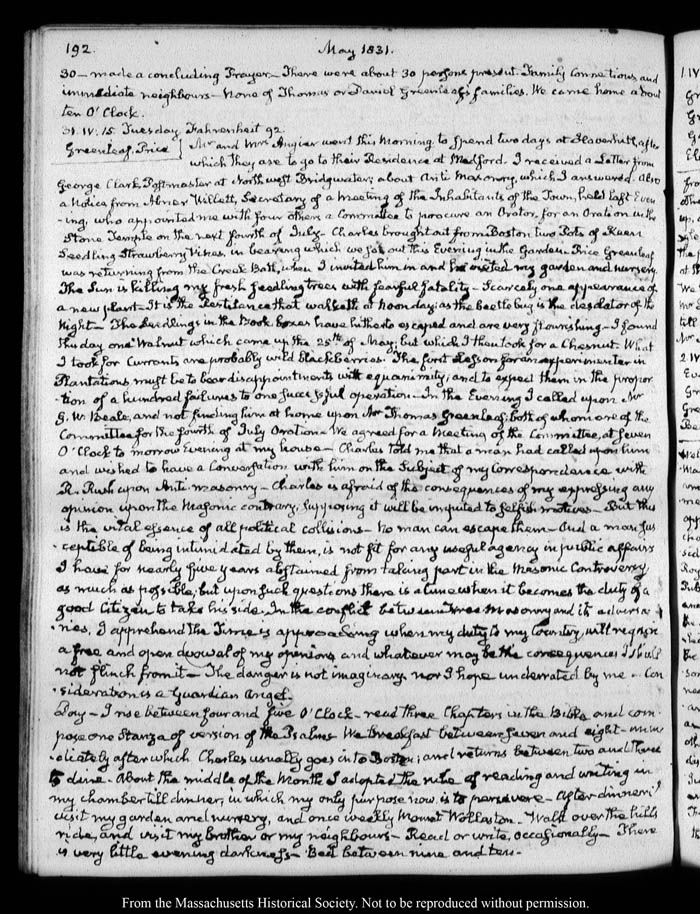 192. May 1831.
30 — made a concluding Prayer — There were about 30 persons present. Family Connections, and
immediate neighbours — None of Thomas or Daniel Greenleaf's families. We came home about
ten O'Clock.
31. IV. 15. Tuesday. Fahrenheit 92.
Greenleaf. Price } Mr and Mrs Angier went this Morning to spend two days at , after
which they are to go to their Residence at Medford. I received a Letter from
George Clark, Postmaster at North west Bridgwater; about Anti Masonry, which I answered. Also
a Notice from Abner Willett, Secretary of a Meeting of the Inhabitants of the Town, held last Even
-ing, who appointed me with four others a Committee to procure an Orator, for an Oration in the
Stone Temple on the next fourth of July. Charles brought out from Boston two Pots of Keen
Seedling Strawberry Vines, in bearing which we set out this Evening in the Garden. Price Greenleaf
was returning from the Creek Bath, when I invited him in and he visited my garden and nursery.
The Sun is killing my fresh seedling trees with fearful fatality — Scarcely one appearance of
a new plant — It is the Pestilence that walketh at noon day; as the beetle bug is the desolator of the
Night — The Seedlings in the Book boxes have hitherto escaped and are very flourishing — I found
this day one Walnut which came up the 25th of May; but which I then took for a Chesnut. What
I took for Currants are probably wild Blackberries. The first lesson for an experimenter in
Plantations must be to bear disappointments with equanimity; and to expect them in the propor
-tion of a hundred failures to one successful operation. In the Evening I called upon Mr
G. W. Beale, and not finding him at home upon Mr Thomas Greenleaf; both of whom are of the
Committee for the fourth of July Oration. We agreed for a Meeting of the Committee, at seven
O'Clock to morrow Evening at my house — Charles told me that a man had called upon him
and wished to have a Conversation with him on the Subject of my Correspondence with
R. Rush upon Anti-masonry — Charles is afraid of the consequences of my expressing any
opinion upon the Masonic contrary, supposing it will be imputed to selfish motives — But this
is the vital essence of all political collisions — No man can escape them — And a man sus
-ceptible of being intimidated by them, is not fit for any useful agency in public affairs
I have for nearly five years abstained from taking part in the Masonic Controversy
as much as possible, but upon such questions there is a time when it becomes the duty of a
good Citizen to take his side. In the conflict between Free Masonry and its adversa
-ries, I apprehend the Time is approaching when my duty to my Country, will require
a free and open avowal of my opinions and whatever may be the consequences I shall
not flinch from it — The danger is not imaginary nor I hope underrated by me — Con
-sideration is a Guardian Angel.
Day — I rise between four and five O'Clock — read three Chapters in the Bible and com
pose one Stanza of version of the Psalms. We breakfast between seven and eight — imme
-diately after which Charles usually goes into Boston; and returns between two and three
to dine. About the middle of the Month I adopted the rule of reading and writing in
my chamber till dinner, in which my only purpose now is to persevere — After dinner I
visit my garden and nursery, and once weekly Mount Wollaston. Walk over the hills
ride, and visit my brother or my neighbours — Read or write, occasionally — There
is very little evening darkness — Bed between nine and ten.
From the Massachusetts Historical Society. Not to be reproduced without permission.